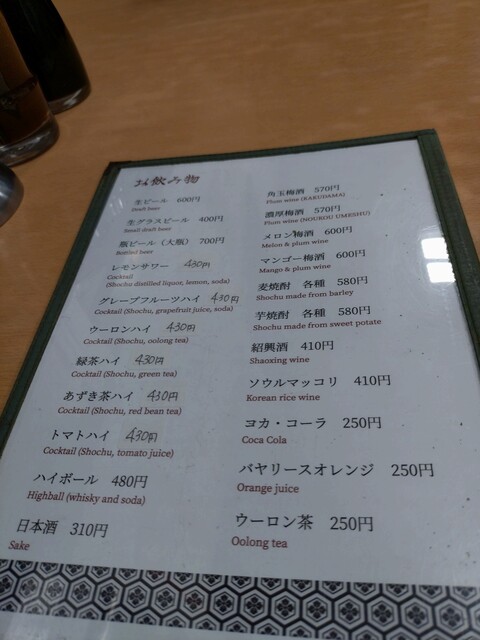 お飲み物
生ビール 600円
Draft beer
生グラスビール 400円
Small draft beer
瓶ビール（大瓶） 700円
Bottled beer
レモンサワー 430円
Cocktail
(Shochu distilled liquor, lemon, soda)
グレープフルーツハイ 430円
Cocktail (Shochu, grapefruit juice, soda)
ウーロンハイ 430円
Cocktail (Shochu, oolong tea)
緑茶ハイ 430円
Cocktail (Shochu, green tea)
あずき茶ハイ 430円
Cocktail (Shochu, red bean tea)
トマトハイ 430円
Cocktail (Shochu, tomato juice)
ハイボール 480円
Highball (whisky and soda)
日本酒 310円
Sake
角玉梅酒 570円
Plum wine (KAKUDAMA)
濃厚梅酒 570円
Plum wine (NOUKOU UMESHU)
メロン梅酒 600円
Melon & plum wine
マンゴー梅酒 600円
Mango & plum wine
麦焼酎 各種 580円
Shochu made from barley
芋焼酎 各種 580円
Shochu made from sweet potato
紹興酒 410円
Shaoxing wine
ソウルマッコリ 410円
Korean rice wine
ヨカ・コーラ 250円
Coca Cola
バヤリースオレンジ 250円
Orange juice
ウーロン茶 250円
Oolong tea